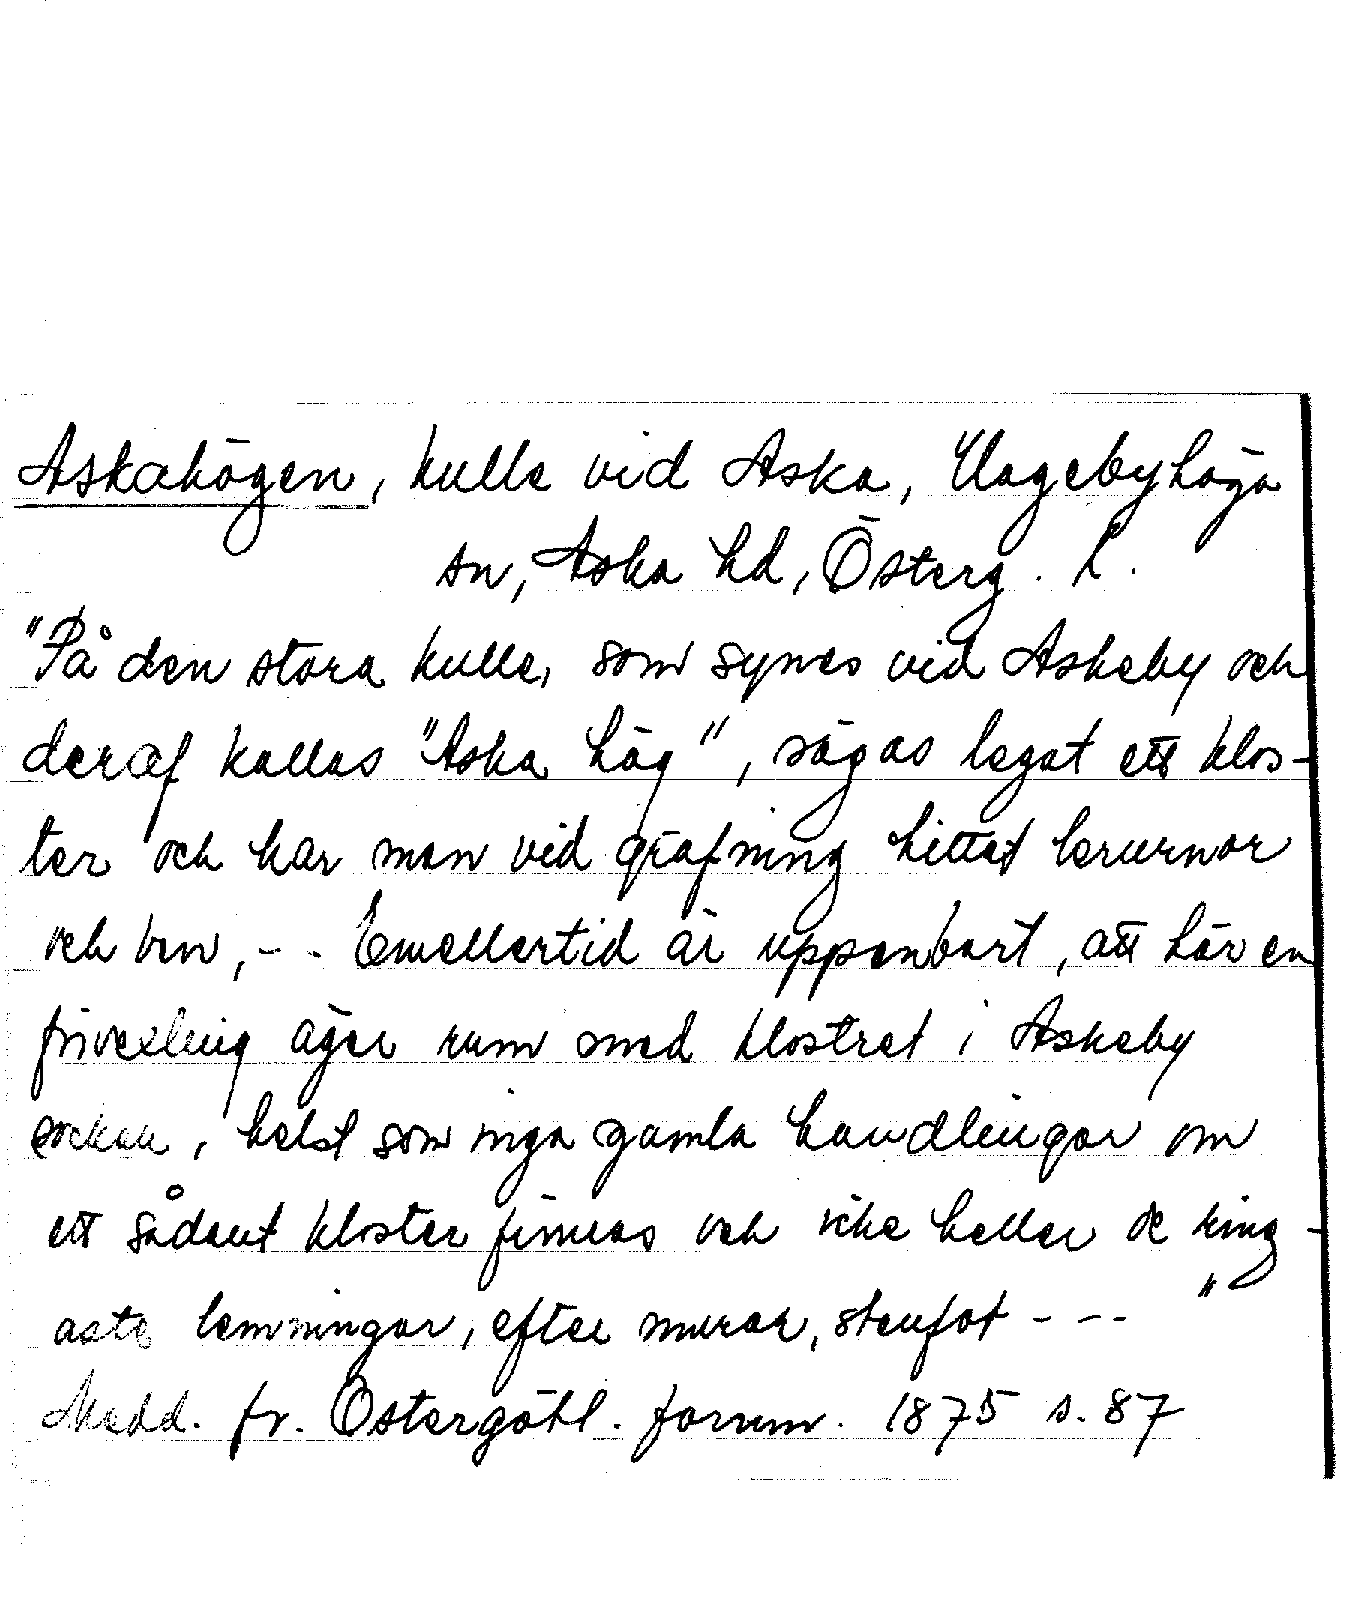 Askahögen, kulle vid Aska, Hagebyhöga
sn, Aska hd, Österg. L.
"På den stora kulle, som synes vid Askeby och
deraf kallas "Aska hög", sägas legat ett klos-
ter och har man vid gräfning hittat lerurnor
och ben, - - Emellertid är uppenbart, att här en
förvexling äger rum med klostret i Askeby
socken, helst som inga gamla handlingar om
ett sådant kloster finnas och icke heller de ring-
aste lemningar, efter murar, stenfot - - - "
Medd. fr. Östergötl. fornm. 1875 s. 87